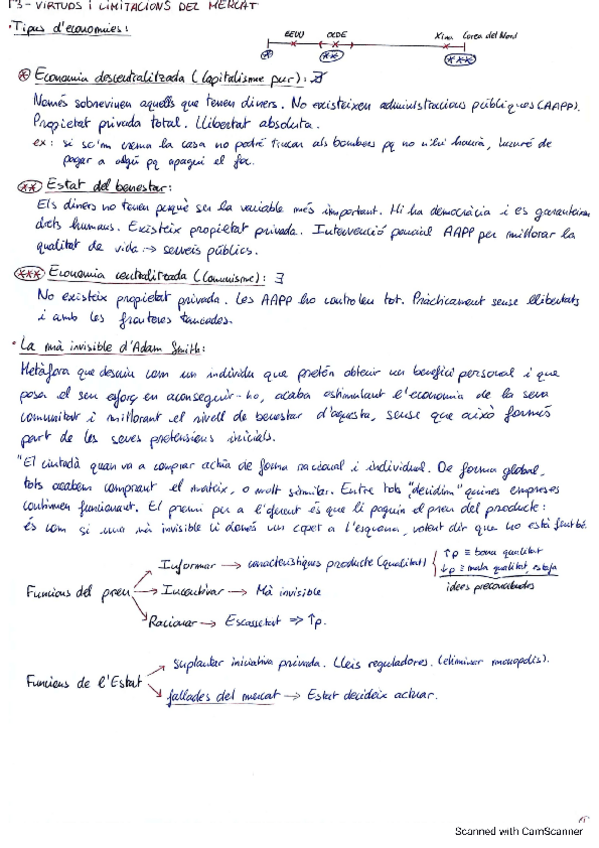 T3- VIRTUDS i LIMITACIONS DEL MERCAT
· Tipus d'economies:
EEUU OCDE Xina Corea del Nord
* ** ***
* Economia descentralitzada (Capitalisme pur): ∄
Només sobreviuen aquells que tenen diners. No existeixen administracions públiques (AAPP).
Propietat privada total. Llibertat absoluta.
ex: si se'm crema la casa no podré trucar als bombers pq no n'hi haurà, hauré de
pagar a algú pq apagui el foc.
** Estat del benestar:
Els diners no tenen perquè ser la variable més important. Hi ha democràcia i es garanteixen
drets humans. Existeix propietat privada. Intervenció parcial AAPP per millorar la
qualitat de vida → serveis públics.
*** Economia centralitzada (Comunisme): ∃
No existeix propietat privada. Les AAPP ho controlen tot. Pràcticament sense llibertats
i amb les fronteres tancades.
· La mà invisible d'Adam Smith:
Metàfora que descriu com un individu que pretén obtenir un benefici personal i que
posa el seu esforç en aconseguir-ho, acaba estimulant l'economia de la seva
comunitat i millorant el nivell de benestar d'aquesta, sense que això formés
part de les seves pretensions inicials.
"El ciutadà quan va a comprar actúa de forma racional i individual. De forma global,
tots acabem comprant el mateix, o molt similar. Entre tots "decidim" quines empreses
continuen funcionant. El premi per a l'oferent és que li paguin el preu del producte:
és com si una mà invisible li donés un copet a l'esquena, volent dir que ho està fent bé.
Funcions del preu
Informar → característiques producte (qualitat)
↑p ≡ bona qualitat
↓p ≡ mala qualitat, estafa
idees preconcebudes
Incentivar → Mà invisible
Racionar → Escassetat ⇒ ↑p.
Funcions de l'Estat
Suplantar iniciativa privada. Lleis reguladores. (eliminar monopolis).
fallades del mercat → Estat decideix actuar.
Scanned with CamScanner